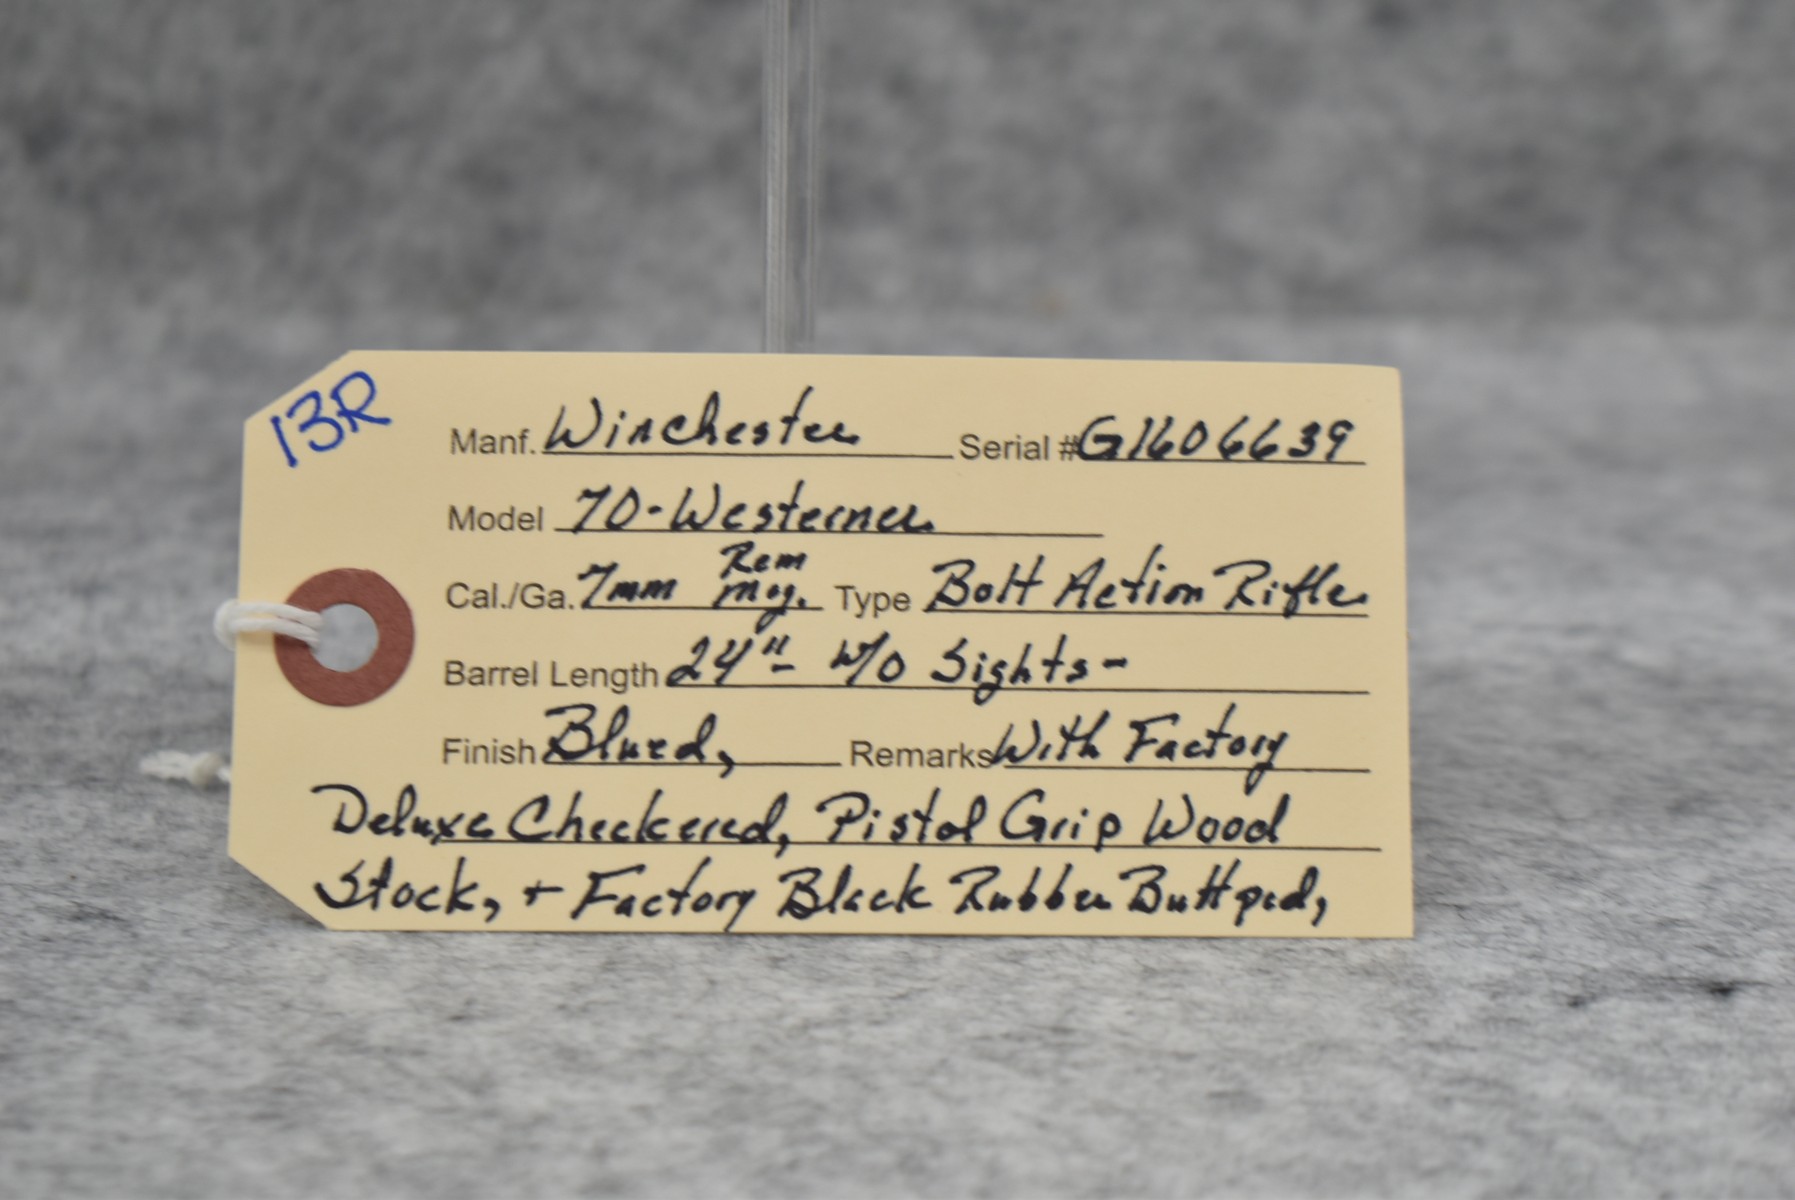 13R
Manf. Winchester Serial # G1606639
Model 70-Westerner
Rem
Cal./Ga. 7mm Mag. Type Bolt Action Rifle
Barrel Length 24" - w/o Sights -
Finish Blued, Remarks With Factory
Deluxe Checkered, Pistol Grip Wood
Stock, + Factory Black Rubber Buttpad,